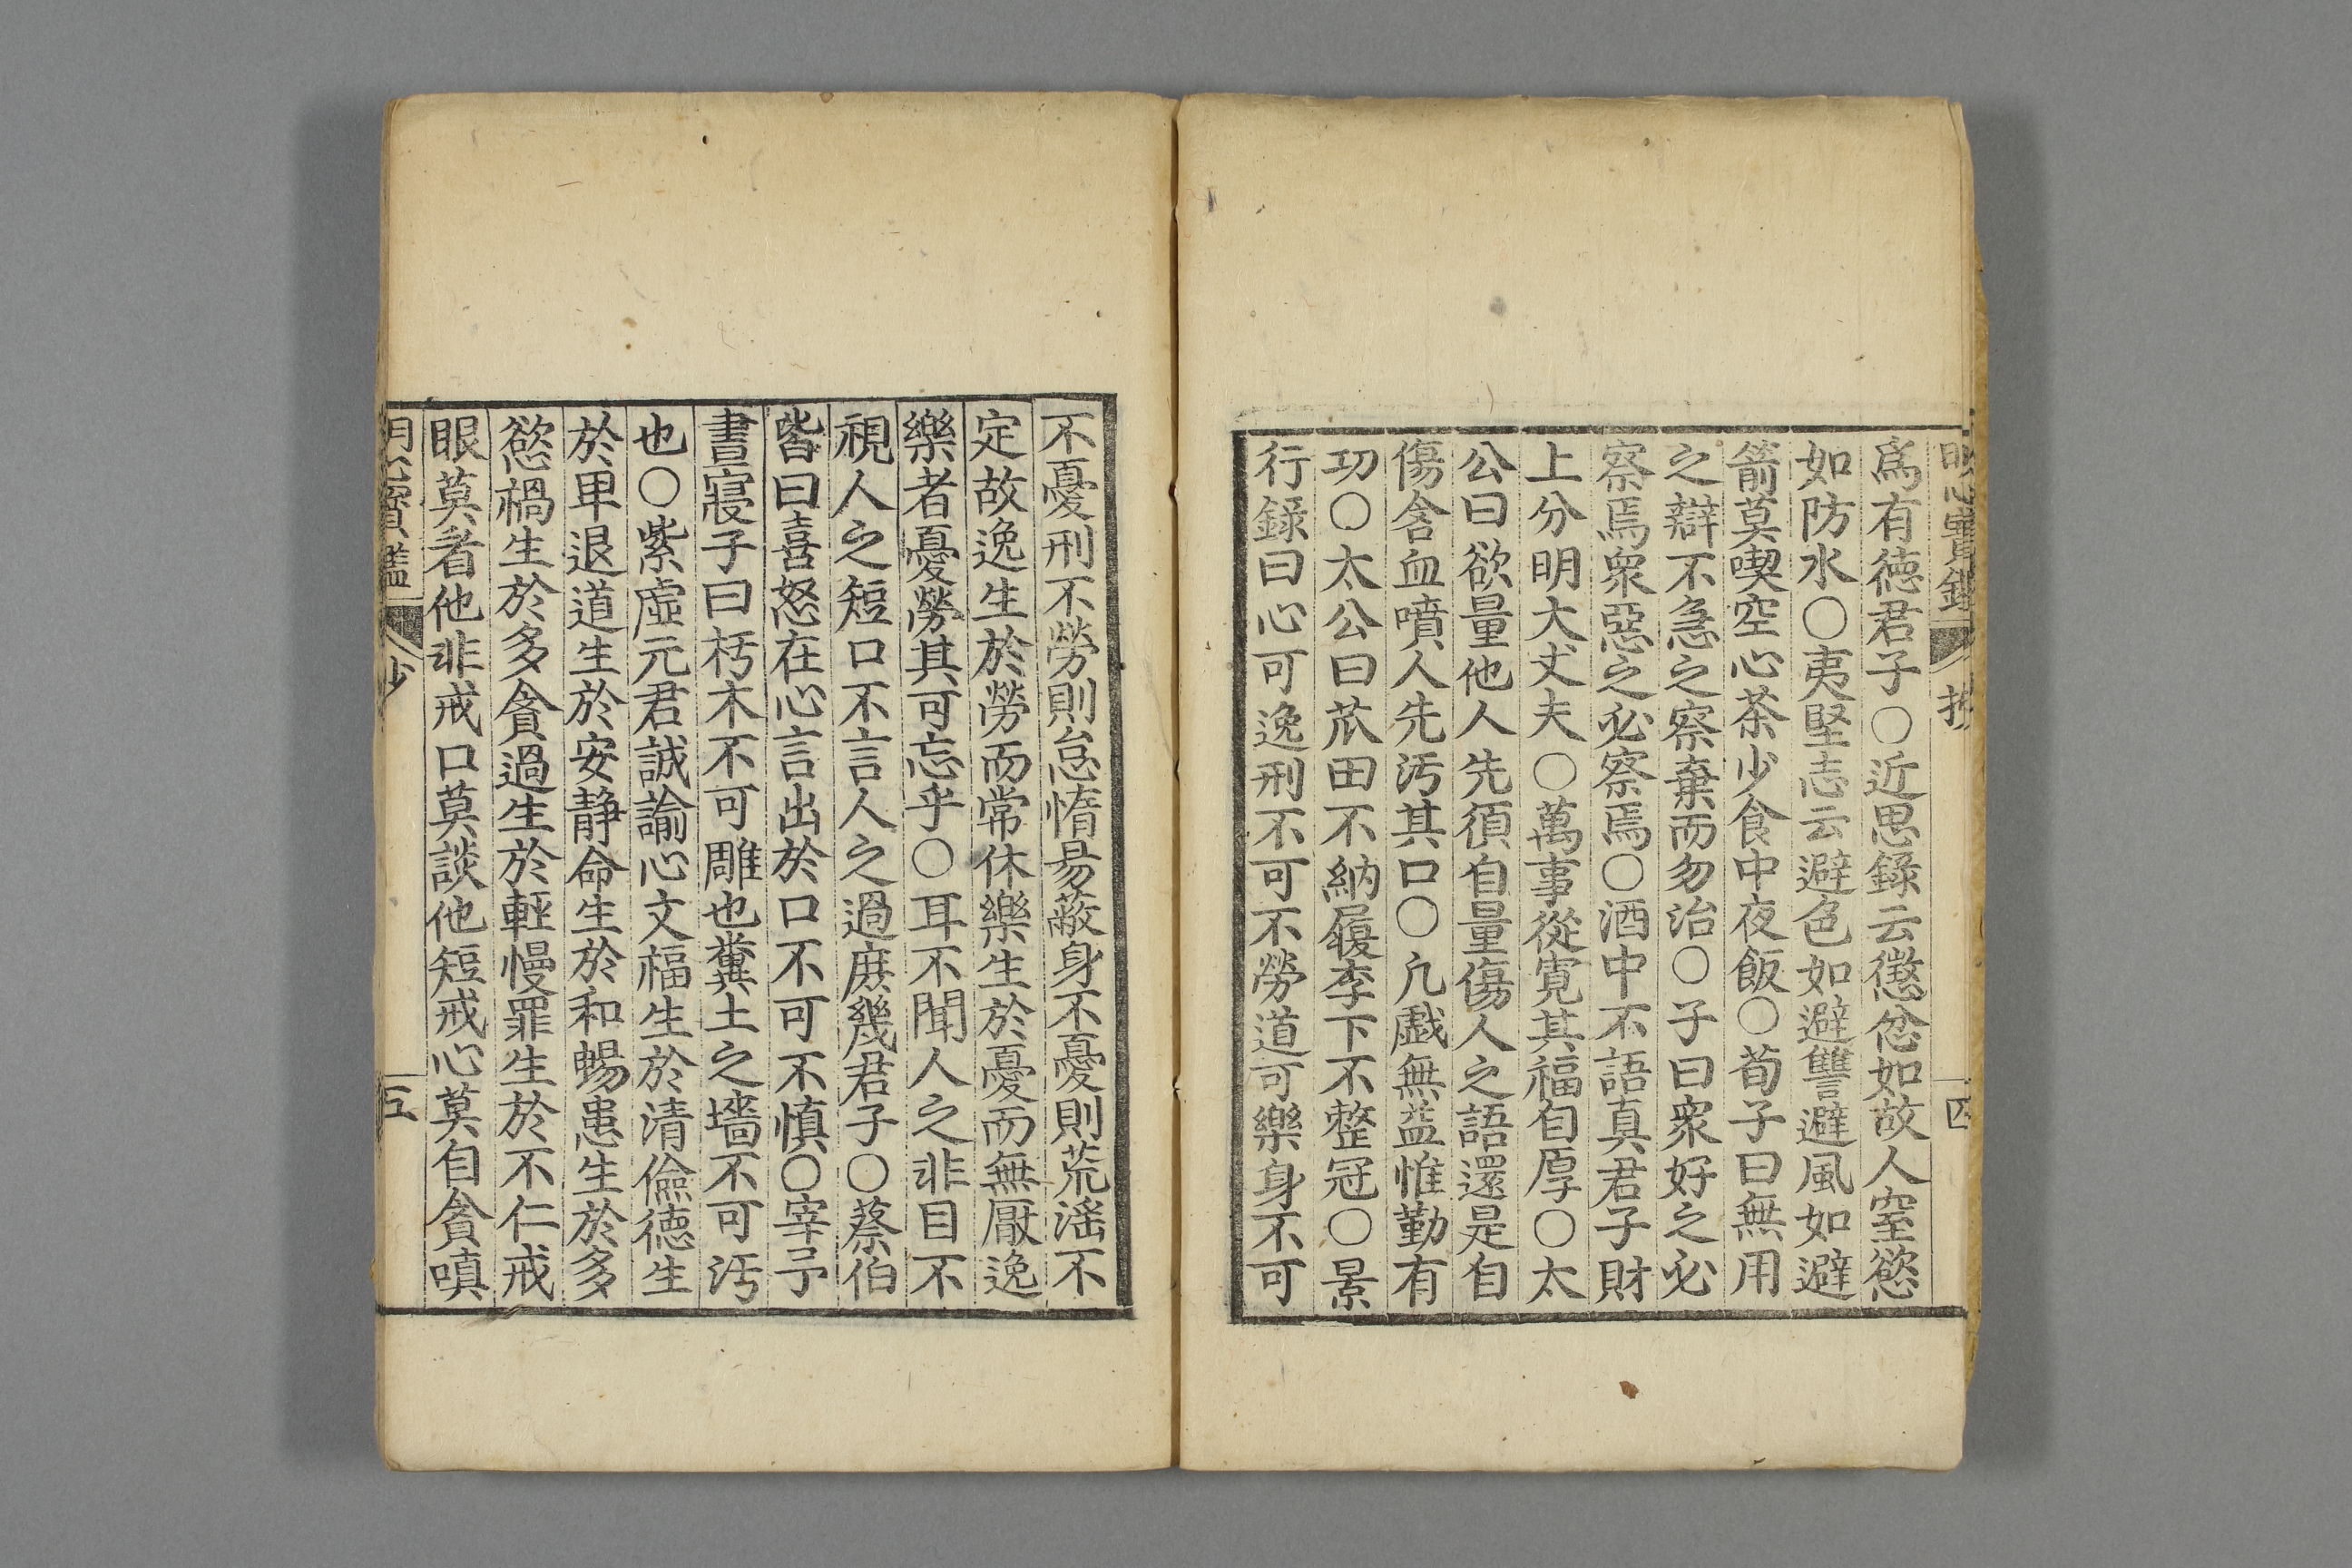 明心寶鑑 抄 四
爲有德君子○近思錄云懲忿如故人窒慾
如防水○夷堅志云避色如避讐避風如避
箭莫喫空心茶少食中夜飯○荀子曰無用
之辯不急之察棄而勿治○子曰衆好之必
察焉衆惡之必察焉○酒中不語真君子財
上分明大丈夫○萬事從寬其福自厚○太
公曰欲量他人先須自量傷人之語還是自
傷含血噴人先汚其口○凡戱無益惟勤有
功○太公曰苽田不納履李下不整冠○景
行錄曰心可逸刑不可不勞道可樂身不可
不憂刑不勞則怠惰昜蔽身不憂則荒滛不
定故逸生於勞而常休樂生於憂而無厭逸
樂者憂勞其可忘乎○耳不聞人之非目不
視人之短口不言人之過庶幾君子○蔡伯
喈曰喜怒在心言出於口不可不慎○宰予
晝寢子曰朽木不可雕也糞土之墻不可汚
也○紫虛元君誠諭心文福生於清儉德生
於卑退道生於安静命生於和暢患生於多
慾禍生於多貪過生於輕慢罪生於不仁戒
眼莫看他非戒口莫談他短戒心莫自貪嗔
明心寶鑑 抄 五